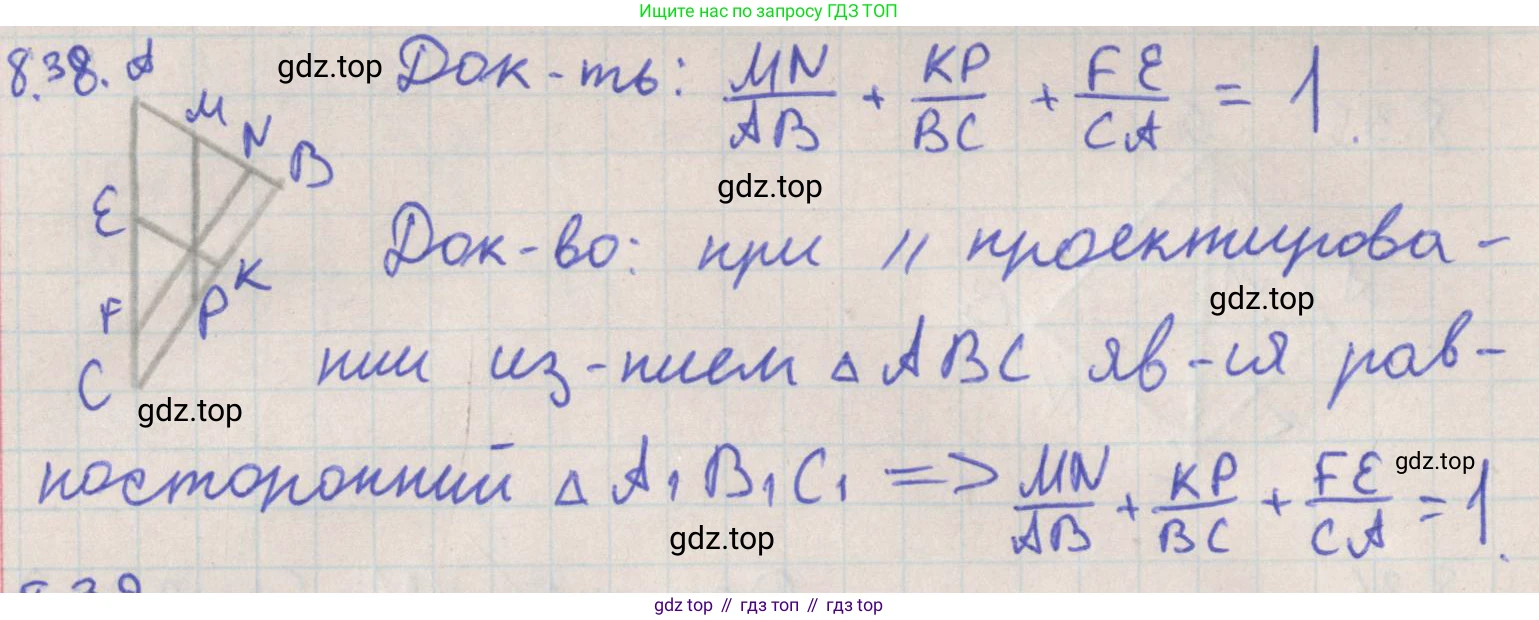 Ищите нас по запросу ГДЗ ТОП
8.38. A gdz.top Док-ть: MN/AB + KP/BC + FE/CA = 1.
M
N
B
gdz.top
E
Док-во: при // проектирова-
K
gdz.top
F P
нии из-нием △ ABC яв-ся рав-
C
gdz.top
носторонний △ A₁B₁C₁ => MN/AB + KP/BC + FE/CA = 1.
gdz.top
gdz.top
gdz.top // гдз топ // гдз top